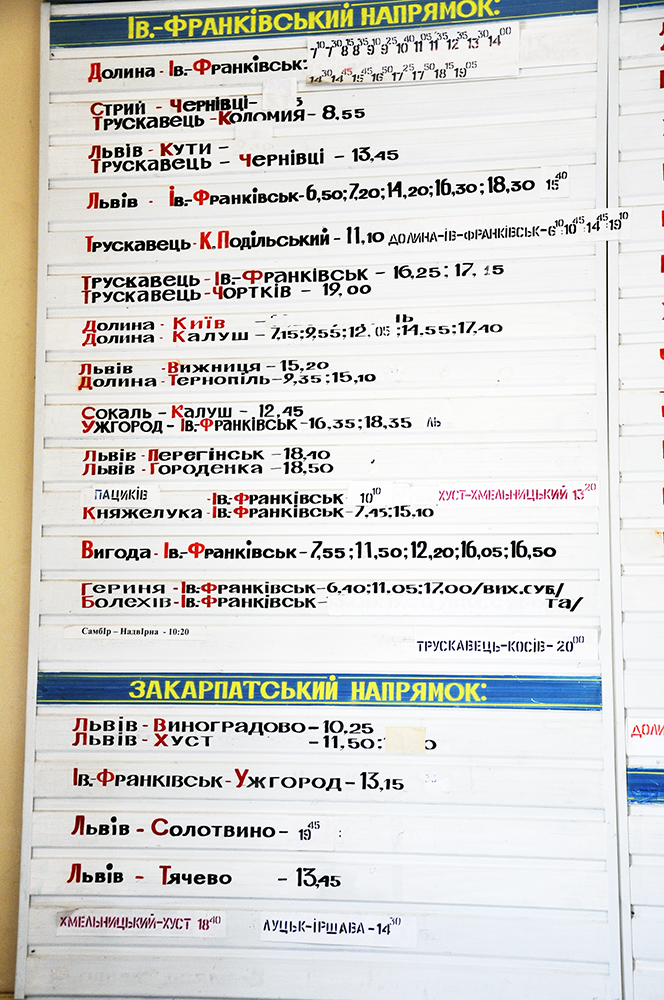 Ів.-Франківський напрямок:
Долина - Ів.-Франківськ: 7¹⁰ 7³⁰ 8¹⁵ 8³⁵ 9¹⁰ 9²⁵ 10⁴⁰ 11⁰⁵ 11³⁵ 12³⁵ 13³⁰ 14⁰⁰
14³⁰ 14⁴⁵ 15¹⁵ 15⁴⁵ 16⁵⁰ 17²⁵ 17⁵⁰ 18¹⁵ 19⁰⁵
Стрий - Чернівці-
Трускавець - Коломия - 8,55
Львів - Кути -
Трускавець - Чернівці - 13,45
Львів - Ів.-Франківськ-6,50; 7,20; 14,20; 16,30; 18,30 15⁴⁰
Трускавець-К.Подільський - 11,10 ДОЛИНА-ІВ-ФРАНКІВСЬК-6¹⁰ 10⁴⁵ 14⁴⁵ 19¹⁰
Трускавець-Ів.-Франківськ - 16,25; 17,15
Трускавець-Чортків - 19,00
Долина - Київ
Долина - Калуш - 7,15; 9,55; 12,05; 14,55; 17,40
Львів -Вижниця - 15,20
Долина-Тернопіль-9,35; 15,10
Сокаль - Калуш - 12,45
Ужгород - Ів.-Франківськ-16,35; 18,35
Львів -Перегінськ -18,40
Львів - Городенка -18,50
ПАЦИКІВ -Ів.Франківськ 10¹⁰ ХУСТ-ХМЕЛЬНИЦЬКИЙ 13²⁰
Княжелука-Ів.-Франківськ-7,45; 15,10
Вигода-Ів.-Франківськ-7,55; 11,50; 12,20; 16,05; 16,50
Гериня-Ів.-Франківськ-6,40; 11.05; 17.00/вих.суб/
Болехів-Ів.-Франківськ- та/
Самбір – Надвірна - 10:20
ТРУСКАВЕЦЬ-КОСІВ-20⁰⁰
ЗАКАРПАТСЬКИЙ НАПРЯМОК:
Львів - Виноградово - 10.25
Львів - Хуст -11,50:
Ів.-Франківськ-Ужгород-13,15
Львів - Солотвино - 19⁴⁵ :
Львів - Тячево - 13,45
ХМЕЛЬНИЦЬКИЙ-ХУСТ 18⁴⁰ ЛУЦЬК-ІРШАВА-14³⁰